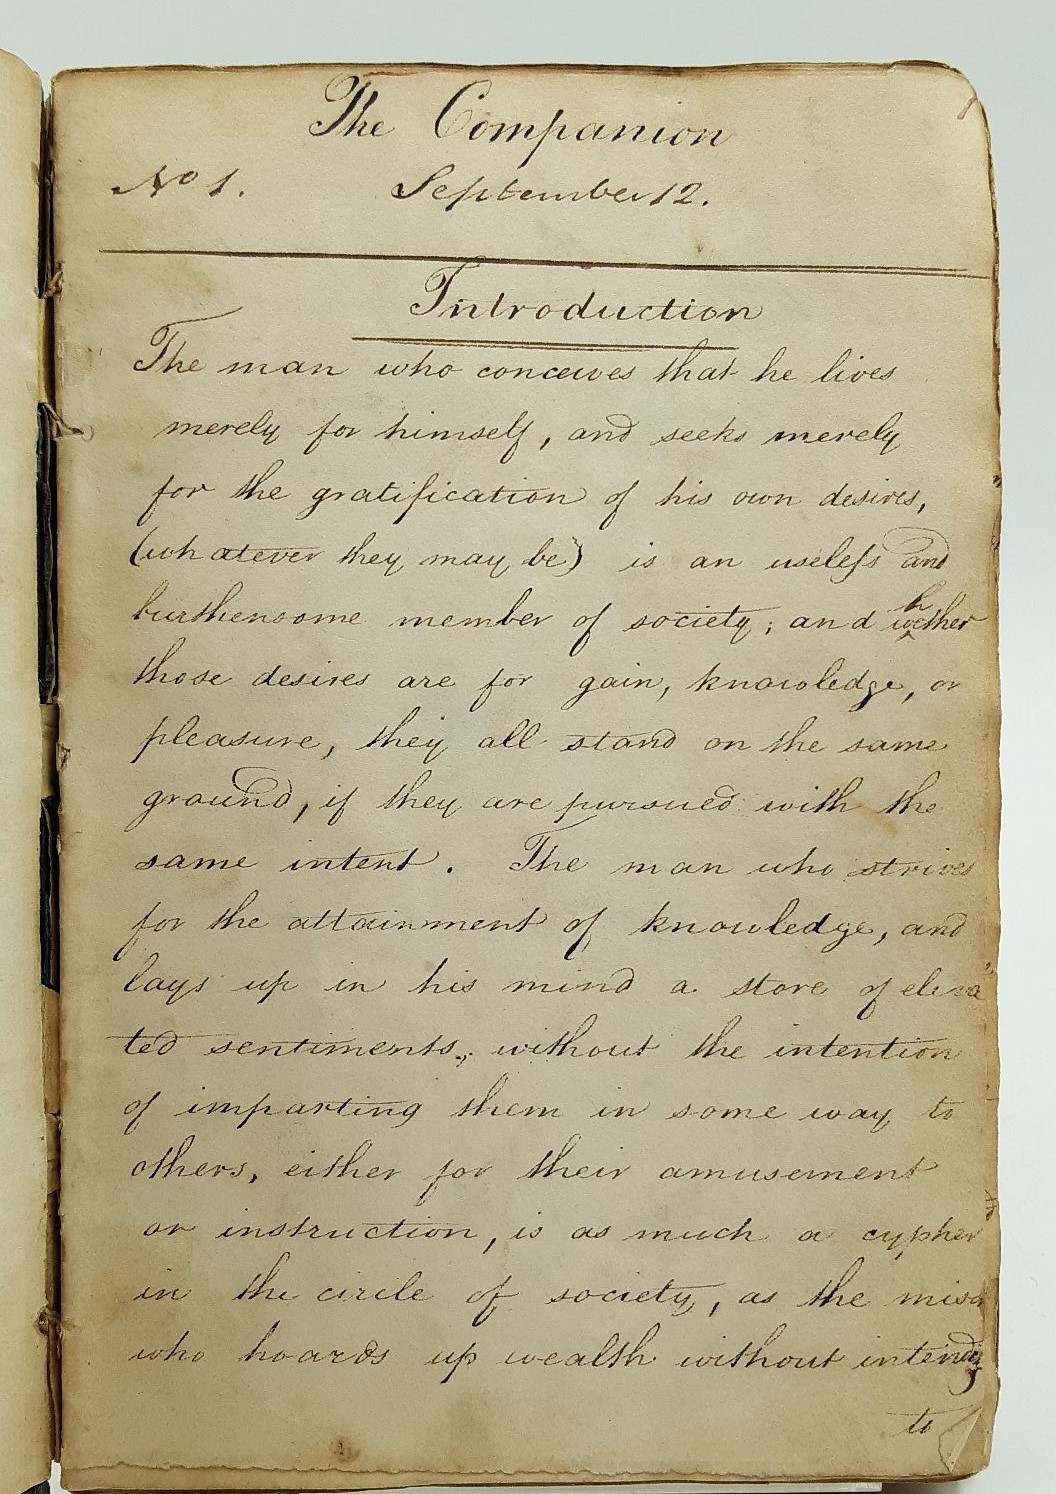 The Companion
No 1. September 12.
Introduction
The man who conceives that he lives
merely for himself, and seeks merely
for the gratification of his own desires,
(whatever they may be) is an useleſs and
burthensome member of society; and whether
those desires are for gain, knowledge, or
pleasure, they all stand on the same
ground, if they are pursued with the
same intent. The man who strives
for the attainment of knowledge, and
lays up in his mind a store of eleva
ted sentiments, without the intention
of imparting them in some way to
others, either for their amusement
or instruction, is as much a cypher
in the circle of society, as the miser
who hoards up wealth without intendg
to